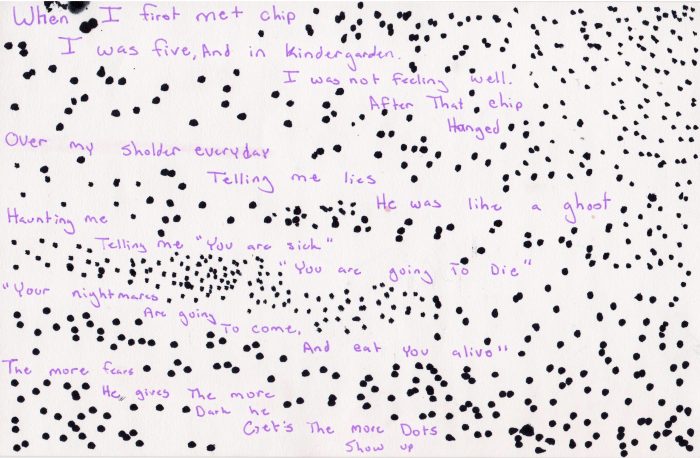 When I first met chip
I was five, And in kindergarden.
I was not feeling well.
After That chip
Hanged
Over my sholder everyday
Telling me lies
He was like a ghost
Haunting me
Telling me "You are sick"
"You are going To Die"
"Your nightmares
Are going
To come,
And eat You alive"
The more fears
He gives The more
Dark he
Get's The more Dots
Show up